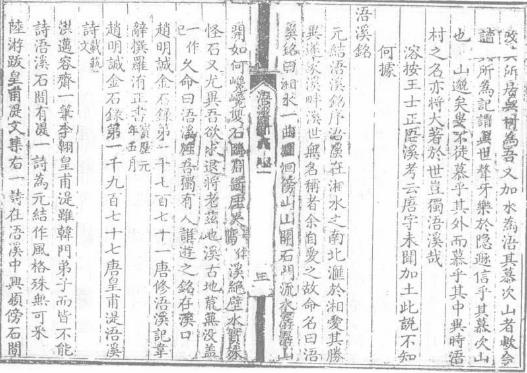 改其所居與村為吾又加水為浯其慕次山者數矣
讀其所為記謂與世聱牙樂於隱遯信乎其慕次山
也山遯矣吳不徒慕乎其外而慕乎其中異時浯
村之名亦將大著於世豈獨浯溪哉
溶按王士正浯溪考云唐字未聞加土此説不知
何據
浯溪銘
元結浯溪銘序浯溪在湘水之南北滙於湘愛其勝
異遂家溪畔溪世無名稱者余自愛之故命名曰浯
溪銘曰湘水一曲淵洄傍山山開石門流水潺潺山
開如何巉巉雙石臨淵斷崖夾溪絕壁水實殊
怪石又尤異吾欲求退將老兹地溪古地荒蕪沒蓋
一作久命曰浯溪旌吾獨有人誰遊之銘在溪口
趙明誠金石録第一千七百七十一唐修浯溪記韋
辭撰羅洧正書寶歴元年五月
趙明誠金石録第一千九百七十七唐皇甫湜浯溪
詩文載藝
洪邁容齋一筆李翺皇甫湜雖韓門弟子而皆不能
詩浯溪石間有湜一詩為元結作風格殊無可采
陸游跋皇甫湜文集右一詩在浯溪中興頌傍石間